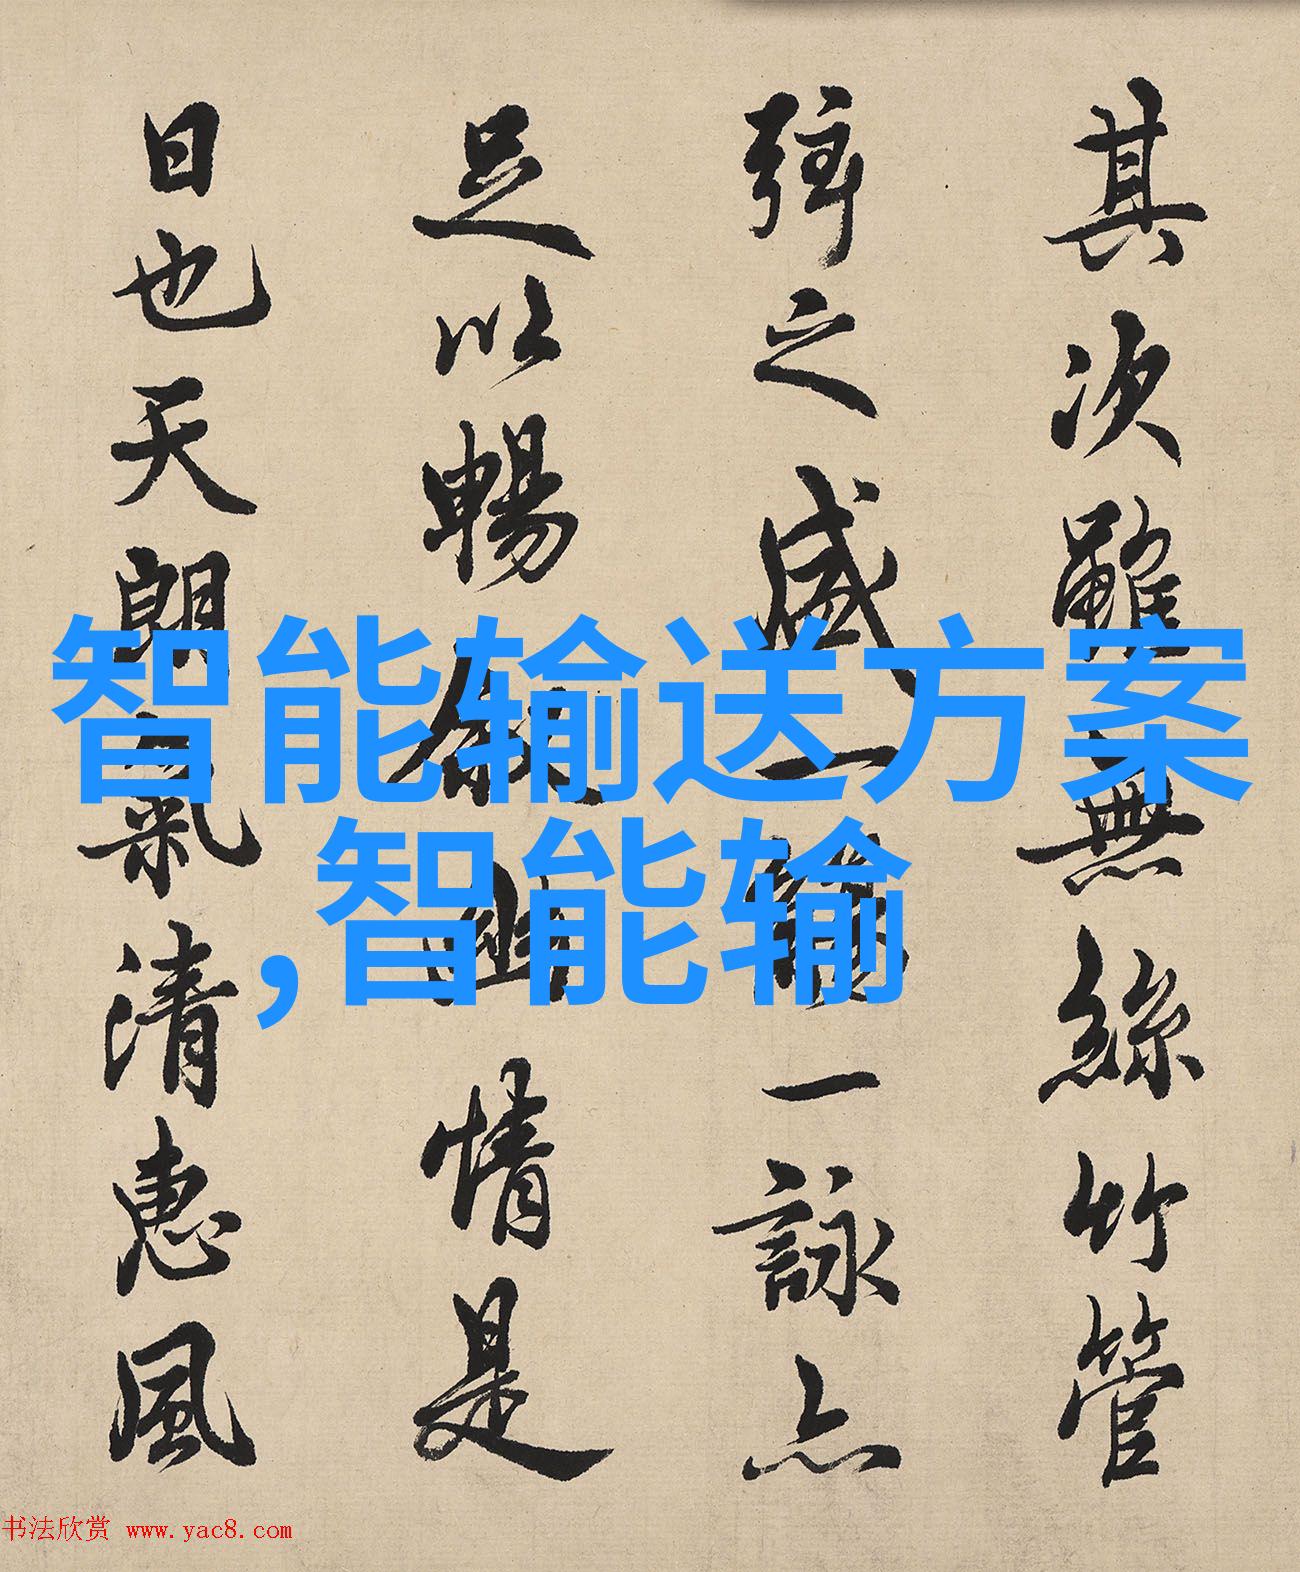 其次雖無絲竹管
弦之盛一觴一詠亦
足以暢敘幽情是
日也天朗氣清惠風
智能输送方案
,智能输
书法欣赏 www.yac8.com